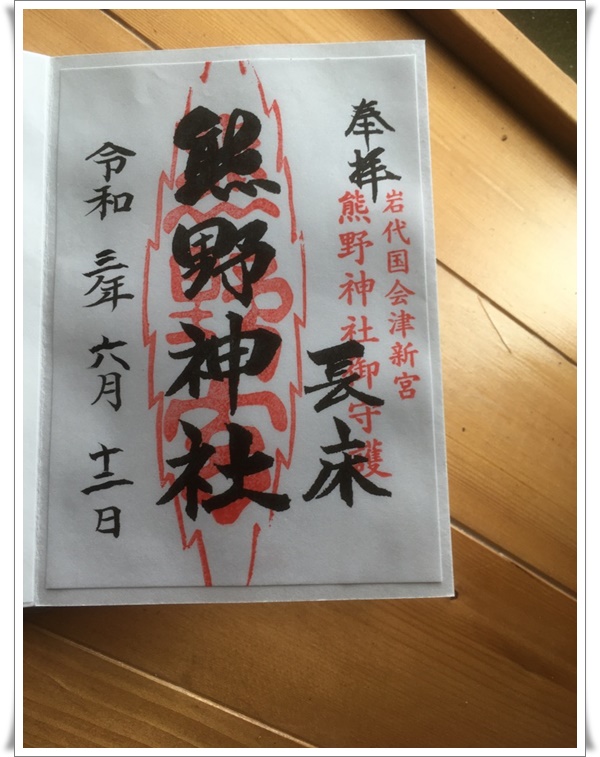 奉拝
岩代国会津新宮
熊野神社御守護
長床
熊野神社
令和三年六月十二日